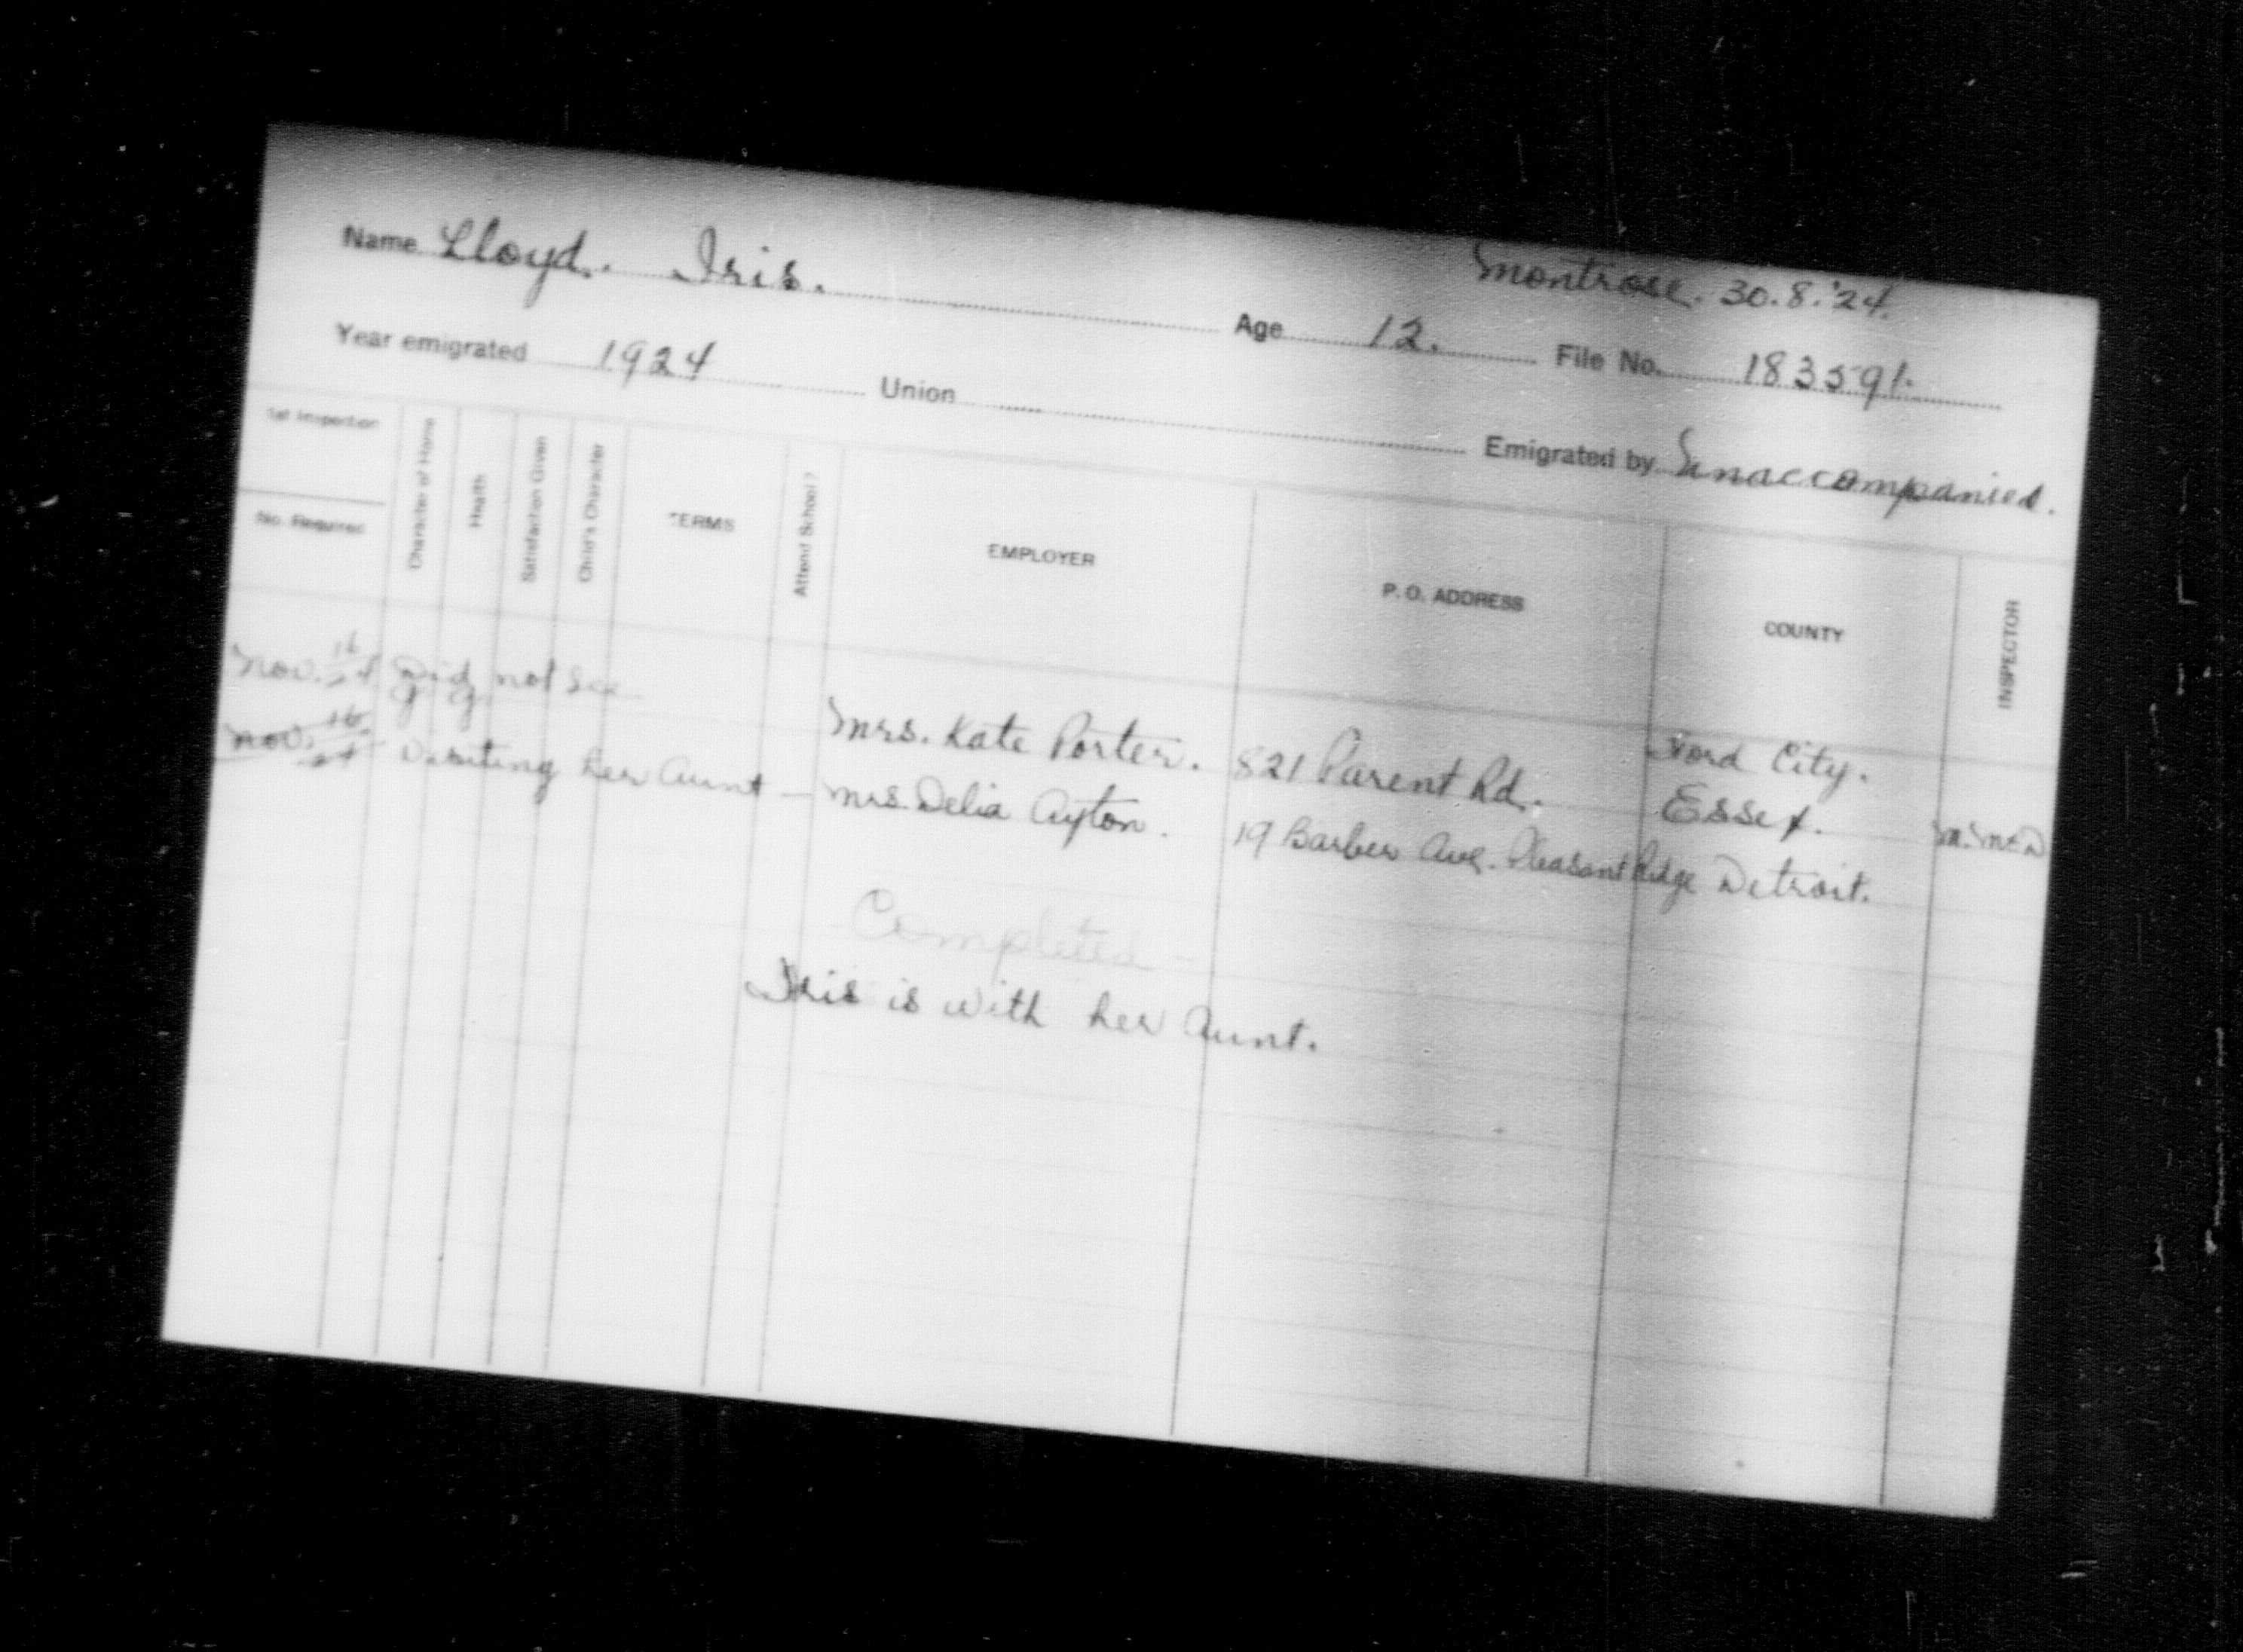 Montrose. 30.8.'24.
Name Lloyd. Iris. Age 12. File No. 183591.
Year emigrated 1924 Union Emigrated by Unaccompanied.
1st Inspection
No. Required
Character of Home
Health
Satisfaction Given
Child's Character
TERMS
Attend School?
EMPLOYER
P. O. ADDRESS
COUNTY
INSPECTOR
Nov. 16/24 Did not See
G. G. Mrs. Kate Porter. 821 Parent Rd. Ford City. Essex. M. McD
Nov. 16/24 Visiting her Aunt — Mrs. Delia Ayton. 19 Barber Ave. Pleasant Ridge Detroit.
Completed -
Iris is with her Aunt.